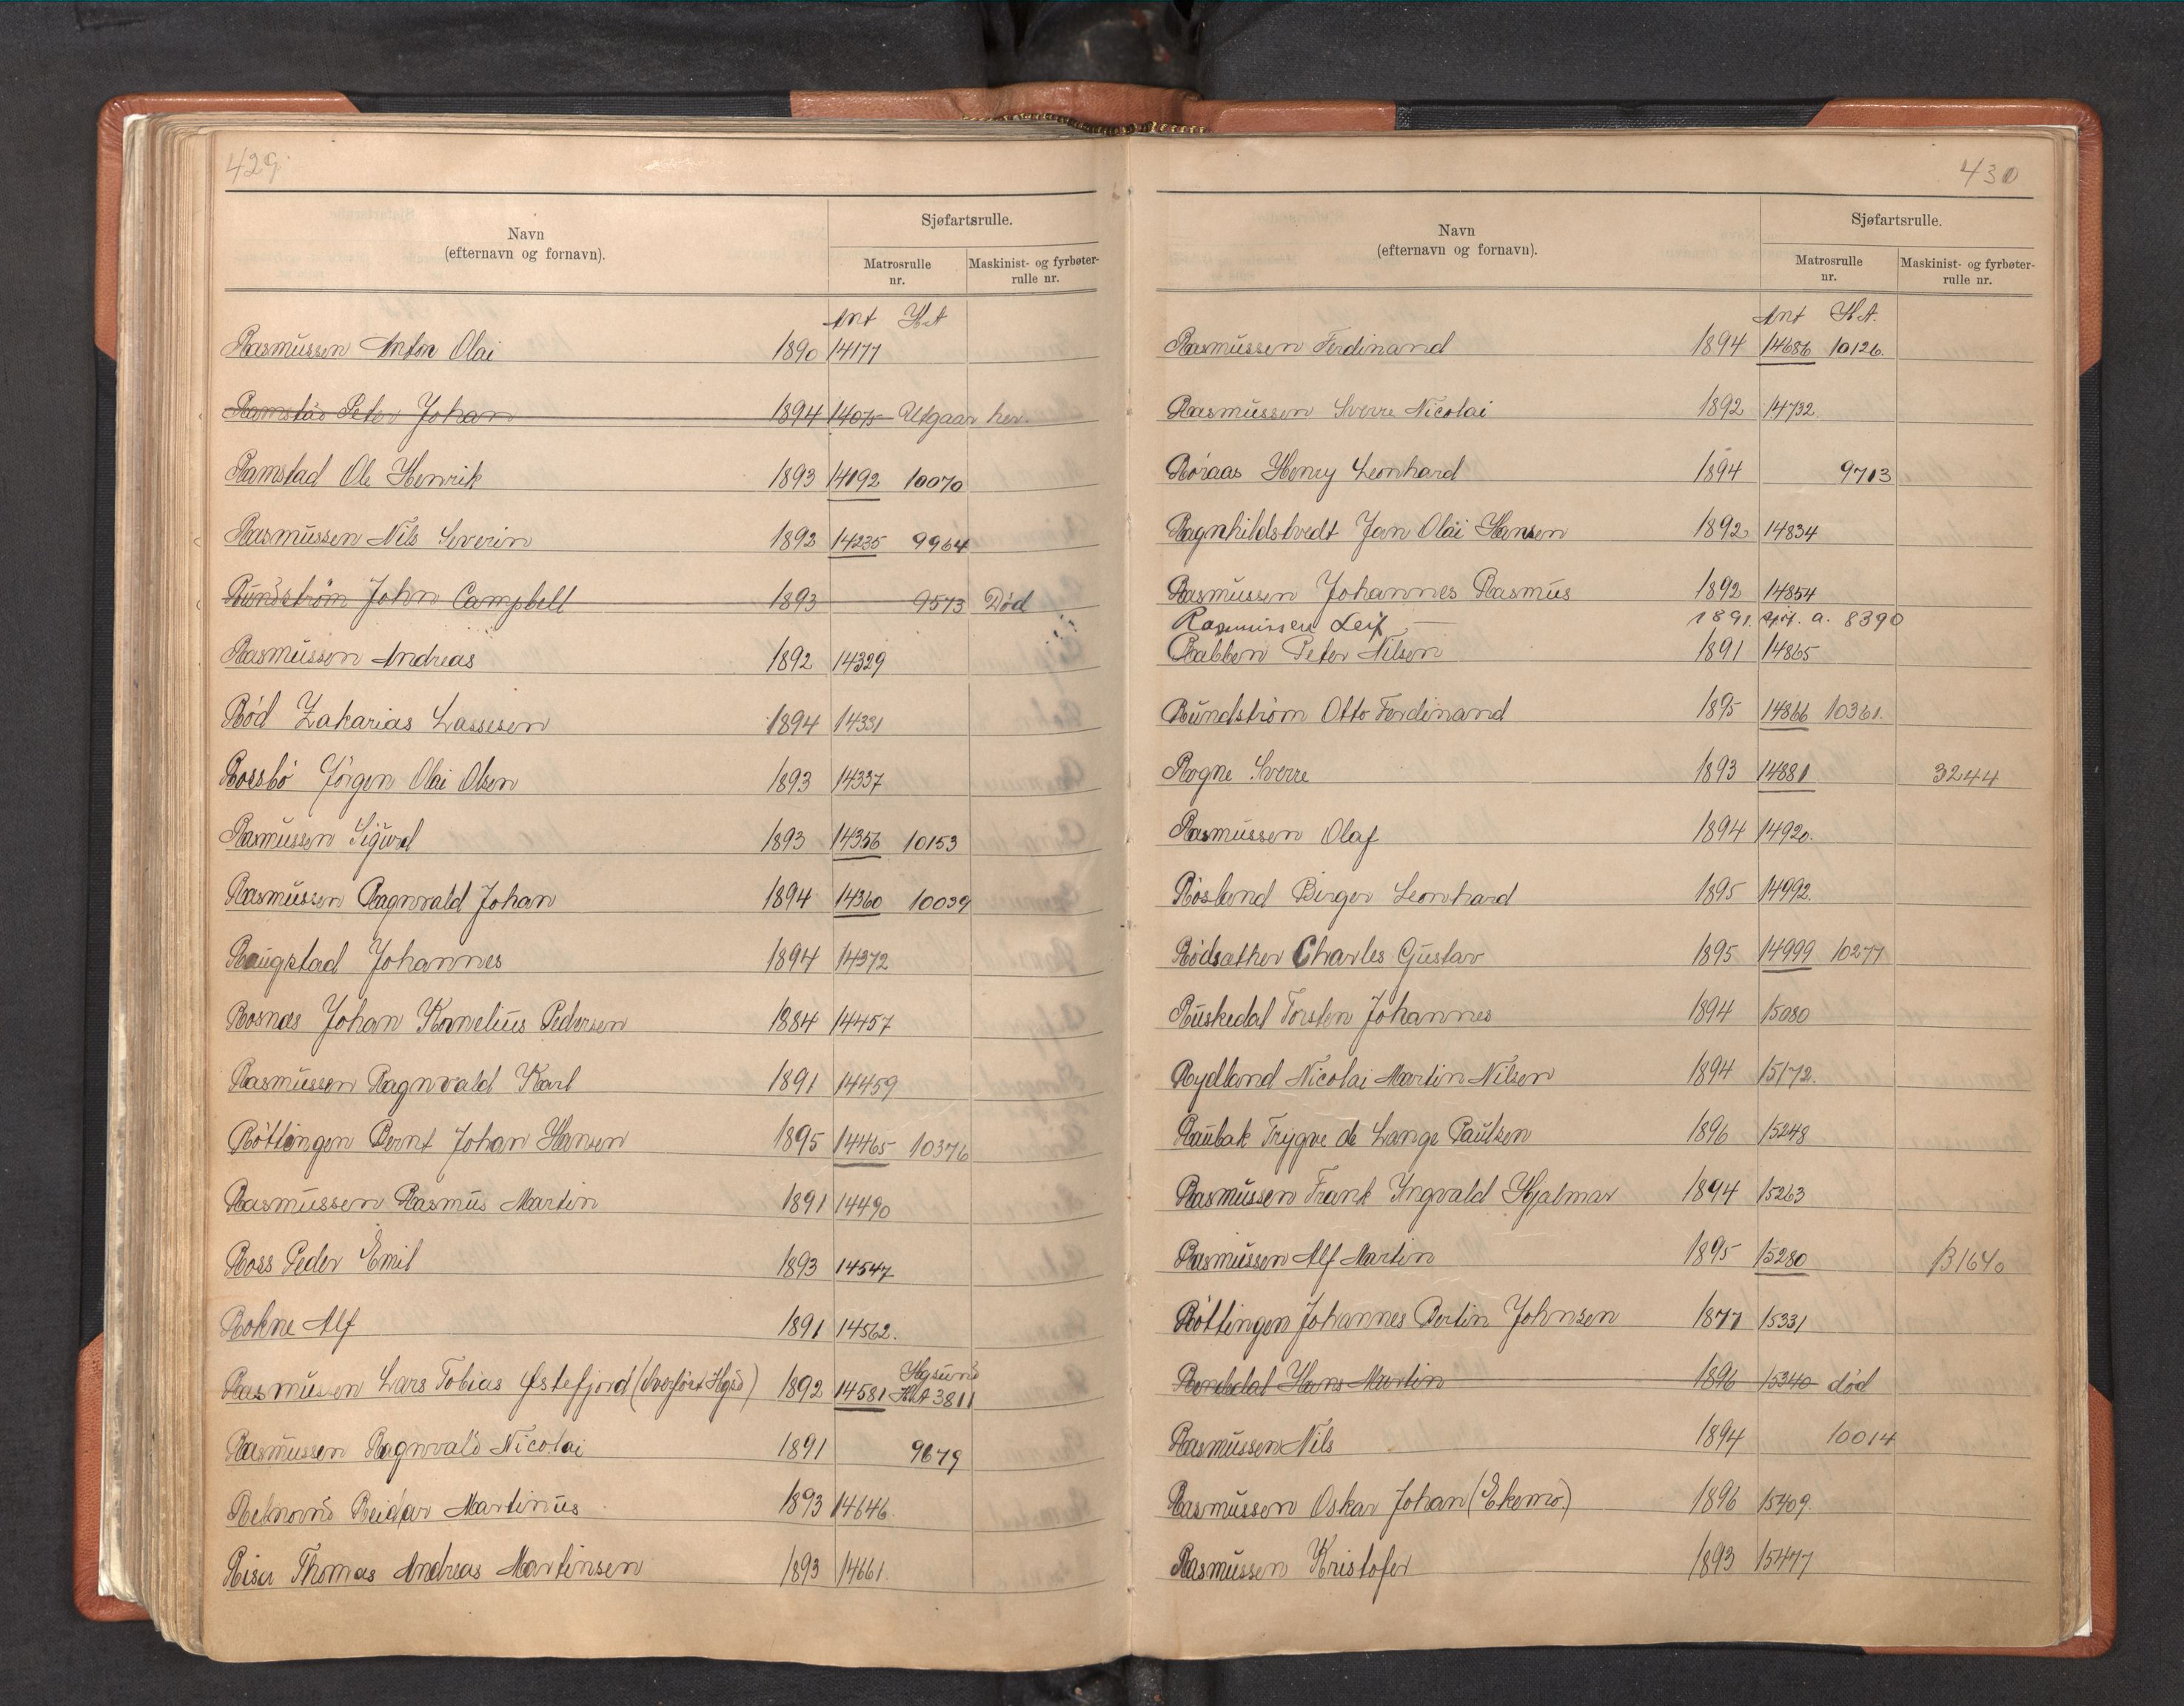 429.
Navn
(efternavn og fornavn).
Sjøfartsrulle.
Matrosrulle
nr.
Maskinist- og fyrbøter-
rulle nr.
Ant H.A
Rasmussen Anton Olai 1890 14177
Ramstås Peter Johan 1894 14075 Utgaar her.
Ramstad Ole Henrik 1893 14192 10070
Rasmussen Nils Severin 1893 14235 9964
Rundström John Campbell 1893 9573 Död
Rasmussen Andreas 1892 14329
Röd Zakarias Lassesen 1894 14331
Rossbö Jörgen Olai Olsen 1893 14337
Rasmussen Sigurd 1893 14356 10153
Rasmussen Ragnvald Johan 1894 14360 10039
Raugstad Johannes 1894 14372
Rosnes Johan Kornelius Pedersen 1884 14457
Rasmussen Ragnvald Karl 1891 14459
Röttingen Bernt Johan Hansen 1895 14465 10376
Rasmussen Rasmus Martin 1891 14490
Ross Peder Emil 1893 14547
Rokne Alf 1891 14562.
Rasmussen Lars Tobias Østefjord (Overført Hgsd) 1892 14581 Hgsund H.A 3811
Rasmussen Ragnvald Nicolai 1891 9679
Reidar Martinus 1893 14646.
Risa Thomas Andreas Martinsen 1893 14661.
430
Navn
(efternavn og fornavn).
Sjøfartsrulle.
Matrosrulle
nr.
Maskinist- og fyrbøter-
rulle nr.
Ant H.A.
Rasmussen Ferdinand 1894 14686 10126.
Rasmussen Sverre Nicolai 1892 14732.
Röraas Henry Leonhard 1894 9713
Ragnhildstvedt Jan Olai Hansen 1892 14834
Rasmussen Johannes Rasmus 1892 14854
Rasmussen Leif 1891. a. 8390
Rabben Peter Nilsen 1891 14865
Rundström Otto Ferdinand 1895 14866 10361.
Rogne Sverre 1893 14881 3244
Rasmussen Olaf 1894 14920.
Rösland Birger Leonhard 1895 14992.
Rödsæther Charles Gustav 1895 14999 10277
Ruskedal Torsten Johannes 1894 15080
Rydland Nicolai Martin Nilsen 1894 15172.
Raubak Trygve de Lange Paulsen 1896 15248
Rasmussen Frank Yngvald Hjalmar 1894 15263
Rasmussen Alf Martin 1895 15280 B1640
Röttingen Johannes Bertin Johnsen 1877 15331
Hans Martin 1896 15340 död
Rasmussen Nils 1894 10014
Rasmussen Oskar Johan (Ekemo.) 1896 15409.
Rasmussen Kristofer 1893 15477